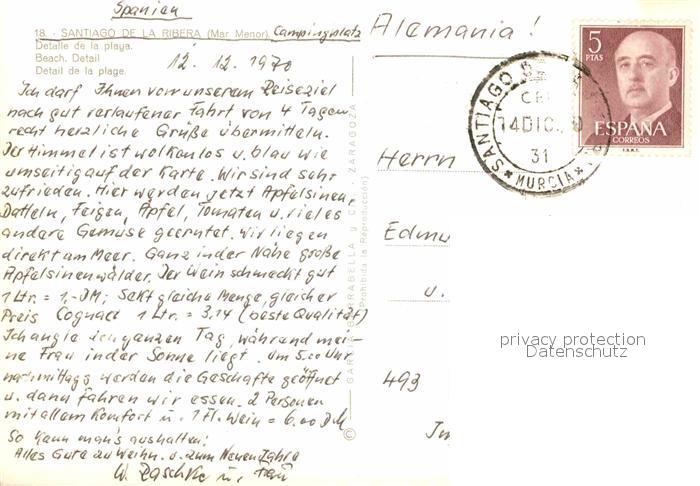 Spanien
18. - SANTIAGO DE LA RIBERA (Mar Menor) Campingplatz
Detalle de la playa.
Beach. Detail
Detail de la plage.
12. 12. 1970
Ich darf Ihnen von unserem Reiseziel
nach gut verlaufener Fahrt von 4 Tagen
recht herzliche Grüße übermitteln.
Der Himmel ist wolkenlos u. blau wie
umseitig auf der Karte. Wir sind sehr
zufrieden. Hier werden jetzt Apfelsinen,
Datteln, Feigen, Äpfel, Tomaten u. vieles
andere Gemüse geerntet. Wir liegen
direkt am Meer. Ganz in der Nähe große
Apfelsinenwälder. Der Wein schmeckt gut
1 Ltr. = 1,-DM; Sekt gleiche Menge, gleicher
Preis Cognac 1 Ltr. = 3,14 (beste Qualität)
Ich angle den ganzen Tag, während mei-
ne Frau in der Sonne liegt. Um 5.00 Uhr
nachmittags werden die Geschäfte geöffnet
u. dann fahren wir essen. 2 Personen
mit allem Komfort u. 1 Fl. Wein = 6.00 DM
So kann man's aushalten!
Alles Gute zu Weihn. u. zum Neuen Jahre
W. Raschke u. Frau
© GARCIA GARRABELLA y Cía. ZARAGOZA
(Prohibida la Reproducción)
Alemania!
SANTIAGO
14 DIC.
31
* MURCIA *
5
PTAS
ESPAÑA
CORREOS
Herrn
Edmu
u.
493
privacy protection
Datenschutz